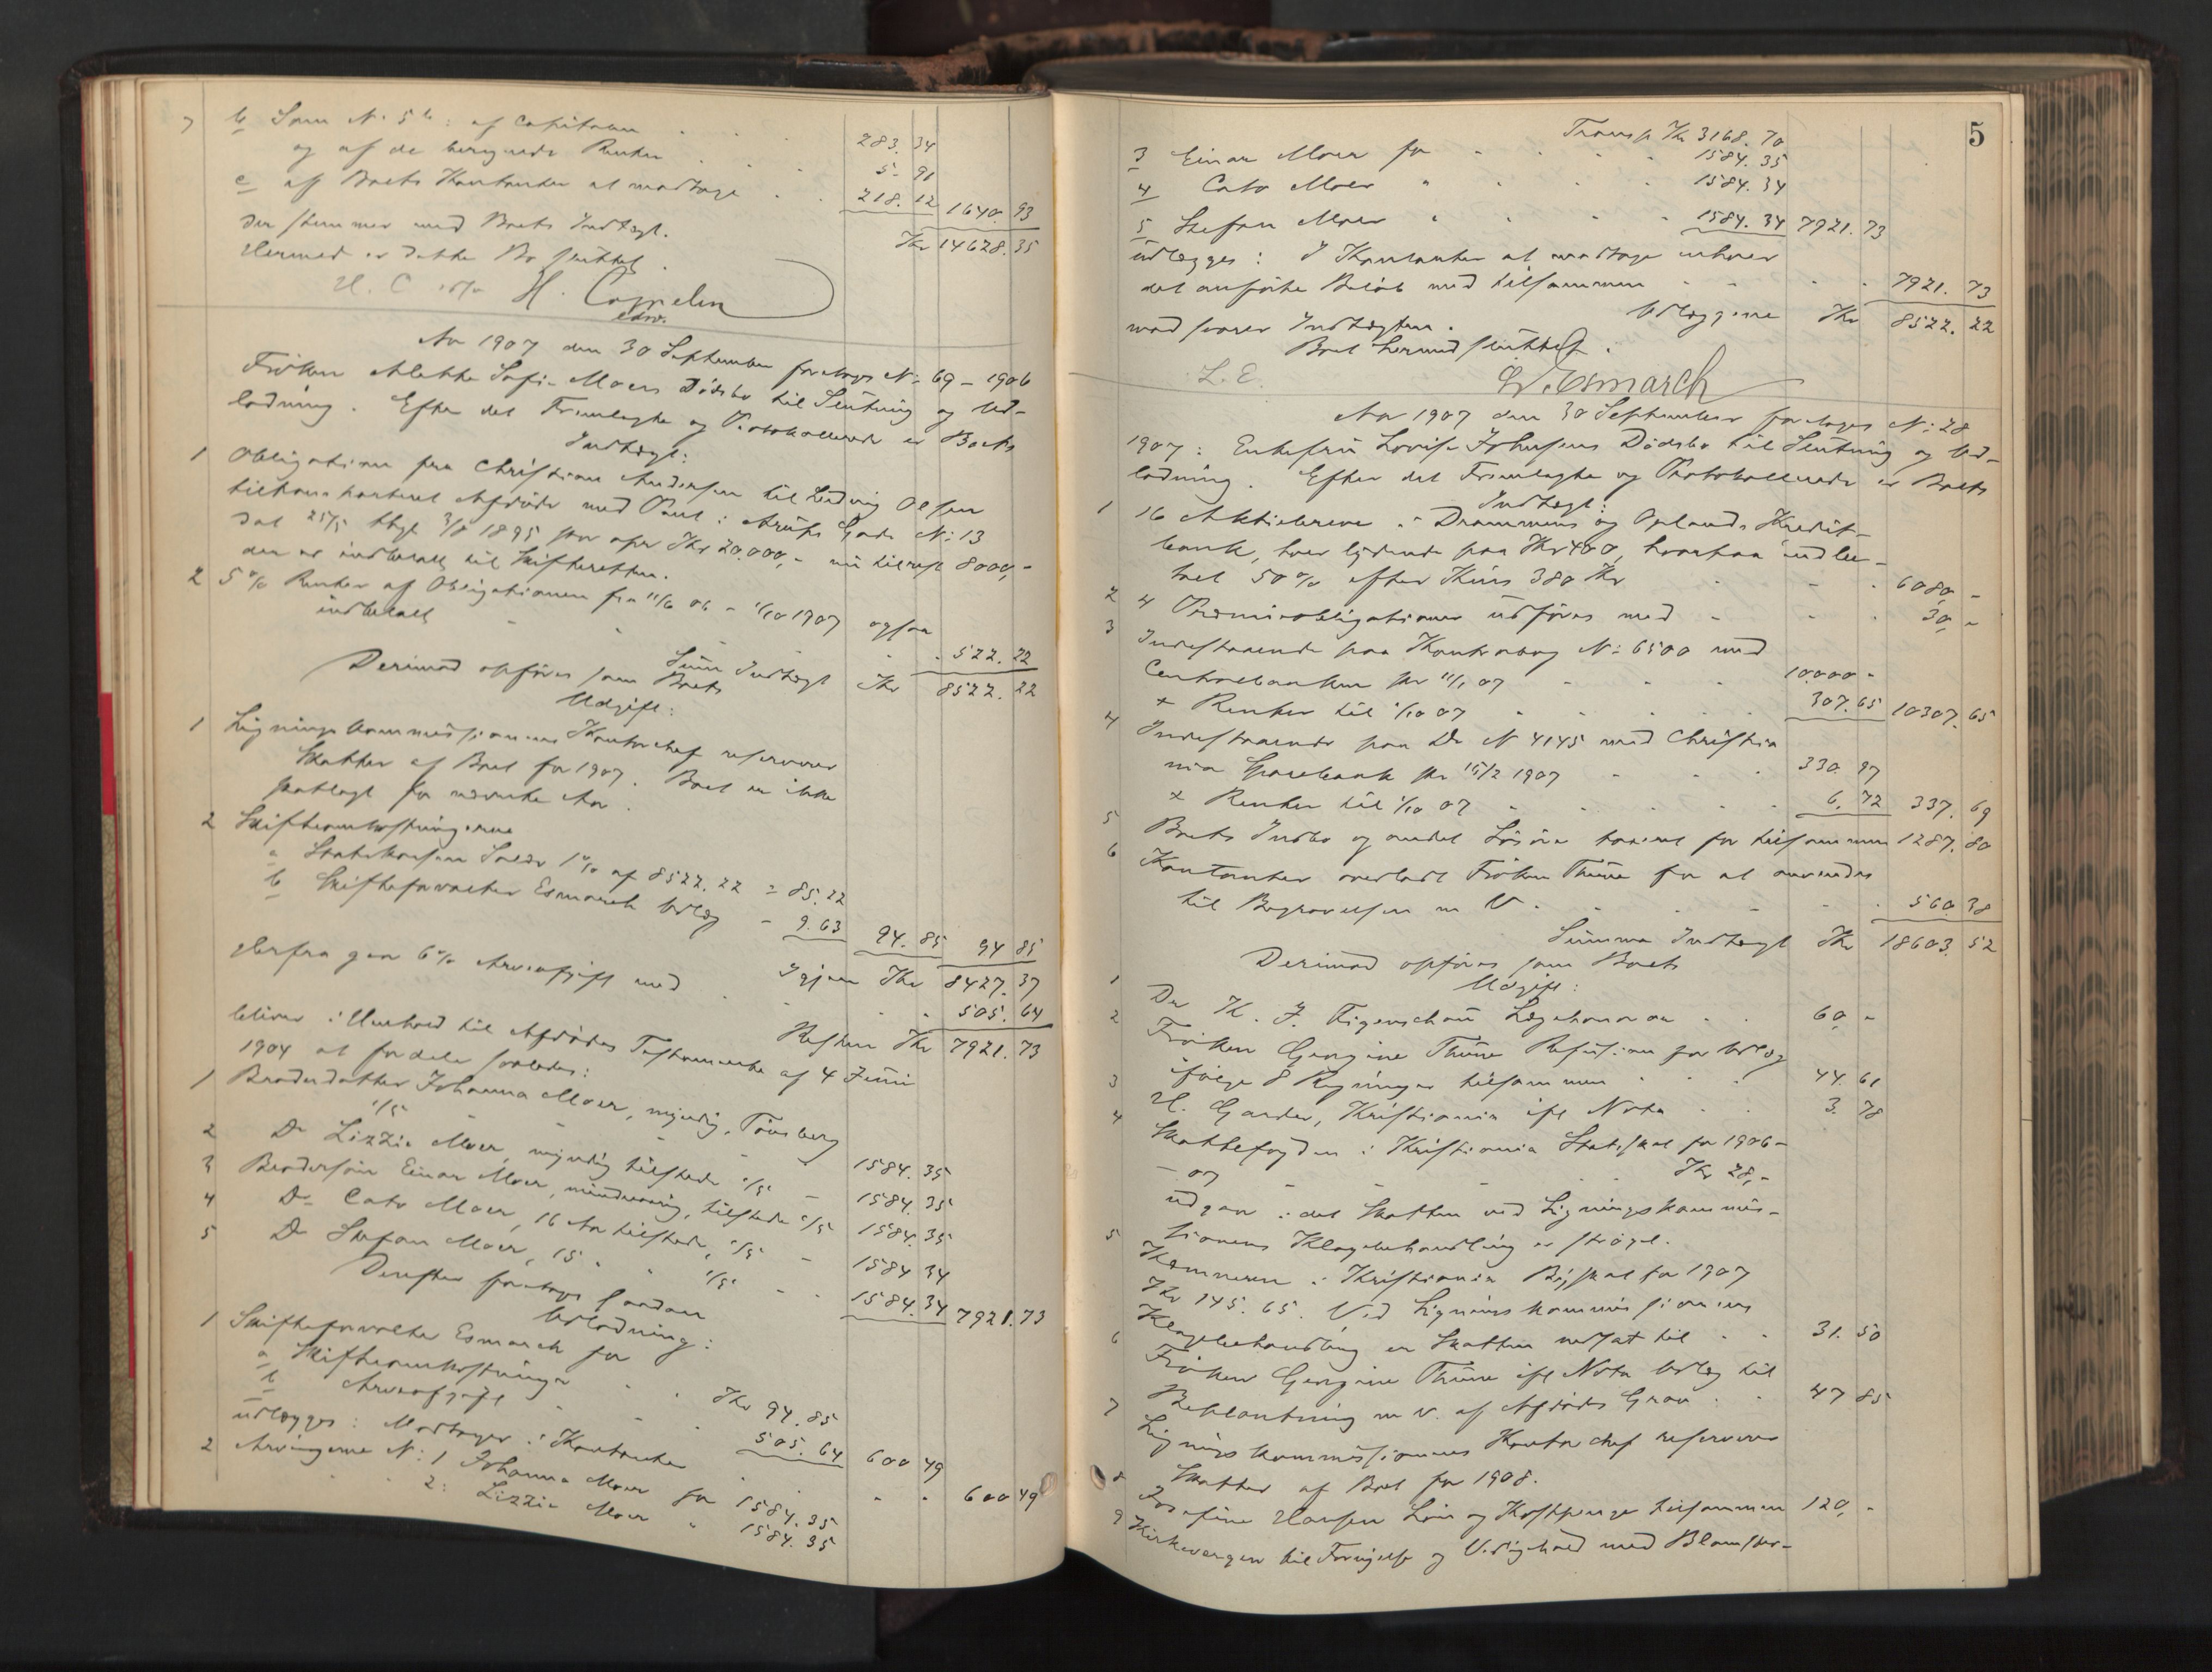 7 b Som N. 5 b: af Capitalen . . . 283. 34
og af de beregnede Renter . . 5. 91
c af Boets Kontanter at modtage . . 218. 12 1640. 93
der stemmer med Boets Indtægt. Kr 14628. 35
Hermed er dette Bo sluttet.
H. Coppelen
Aar 1907 den 30 September foretoges N: 69 - 1906
Frøken Alette Sofie Moers Dødsbo til Slutning og Ud-
lodning. Efter det Fremlagte og Protokollerede er Boets
Indtægt:
1 Obligation fra Christian Andersen til Ludvig Olsen
tiltransporteret Afdøde med Pant i Arups Gade N: 13
dat 25/5 tlgl 3/8 1895 stor opr Kr 20.000,- nu tilrest 8000,-
der er indbetalt til Skifteretten.
2 5 % Renter af Obligationen fra 11/6 06 - 1/10 1907 ogsaa
indbetalt - - - . 522. 22
Sum Indtægt Kr 8522. 22
Derimod opføres som Boets
Udgift:
1 Ligningskommissionens Kontorchef reserverer
Skatter af Boet for 1907. Boet er ikke
skatlagt for nævnte Aar.
2 Skifteomkostningerne
a Statskassen Salær 1 % af 8522. 22 = 85. 22
b Skifteforvalter Esmarch Udlæg - 9. 63 94. 85 94 85
Igjen Kr 8427. 37
Herfra gaar 6 % Arveafgift med . . . 505. 64
Resten Kr 7921. 73
bliver i Henhold til Afdødes Testamente af 4 Juni
1904 at fordele saaledes:
1 Broderdatter Johanna Moer, myndig, Tønsberg
1/5 - - - 1584. 35
2 Do Lizzie Moer, myndig tilstede 1/5 - 1584. 35
3 Brodersøn Einar Moer, mindreaarig, tilstede 1/5 1584. 35
4 Do Cato Moer, 16 Aar tilstede, 1/5 - 1584 34
5 Do Stefan Moer, 15 " " 1/5 - - 1584. 34 7921. 73
Derefter foretoges saadan
Udlodning:
1 Skifteforvalter Esmarch for
a Skifteomkostninger . . Kr 94. 85
b Arveafgift - - - 505. 64 600 49
udlægges: Modtages i Kontanter . . . 600 49
2 Arvingerne N: 1 Johanna Moer for 1584. 35
2: Lizzie Moer " 1584. 35
5
Transp Kr 3168. 70
3 Einar Moer for - - - 1584. 35
4 Cato Moer " - - - 1584. 34
5 Stefan Moer " - - - 1584. 34 7921. 73
udlægges: I Kontanter at modtage enhver
det anførte Beløb med tilsammen - - - 7921. 73
Udlæggene Kr 8522. 22
modsvarer Indtægten.
Boet hermed sluttet.
L. E. Esmarch
Aar 1907 den 30 September foretoges N: 28
1907: Enkefru Lovise Johnsens Dødsbo til Slutning og Ud-
lodning. Efter det Fremlagte og Protokollerede er Boets
Indtægt:
1 16 Aktiebreve i Drammens og Oplands Kredit-
bank, hver lydende paa Kr 400, hvorpaa indbe-
talt 50 % efter Kurs 380 Kr - - - 6080, -
2 4 Præmieobligationer udføres med - - - 30, -
3 Indestaaende paa Kontrabog N: 6500 med
Centralbanken pr 11/1 07 - - - 10.000 -
+ Renter til 1/10 07 - - - 307. 65 10307. 65
4 Indestaaende paa Do N 4145 med Christia
nia Sparebank pr 15/2 1907 - - - 330. 97
+ Renter til 1/10 07 - - - 6. 72 337. 69
5 Boets Indbo og andet Løsøre taxeret for tilsammen 1287. 80
6 Kontanter overladt Frøken Thune for at anvendes
til Begravelsen m V. - - - 560. 38
Summa Indtægt Kr 18603. 52
Derimod opføres som Boets
Udgift:
1 Dr K. J. Figenschau Lægehonorar . . 60, -
2 Frøken Georgine Thune Refusion for Udlæg
ifølge 8 Regninger tilsammen . . . 44. 61
3 H. Garder, Kristiania ifl Nota . . 3. 78
4 Skattefogden i Kristiania Statsskat for 1906-
- 07 - - - Kr 28,-
udgaar i det Skatten ved Ligningskommis-
sionens Klagebehandling er strøget.
5 Kemneren i Kristiania Byskat for 1907
Kr 145. 65. Ved Ligningskommissionens
Klagebehandling er Skatten nedsat til . . 31. 50
6 Frøken Georgine Thune ifl Nota Udlæg til
Beplantning m v. af Afdødes Grav . . 47 85
7 Ligningskommissionens Kontorchef reserverer
Skatter af Boet for 1908.
8 Josefine Hansen Løn og Kostpenge tilsammen 120, -
9 Kirkevergen til Fornyelse og Vedligehold med Blomster-